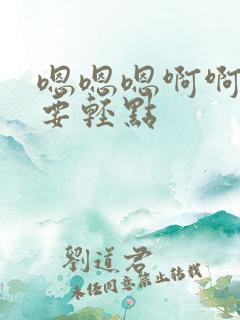 嗯嗯嗯啊啊
要輕點
劉道君
未经同意禁止转载